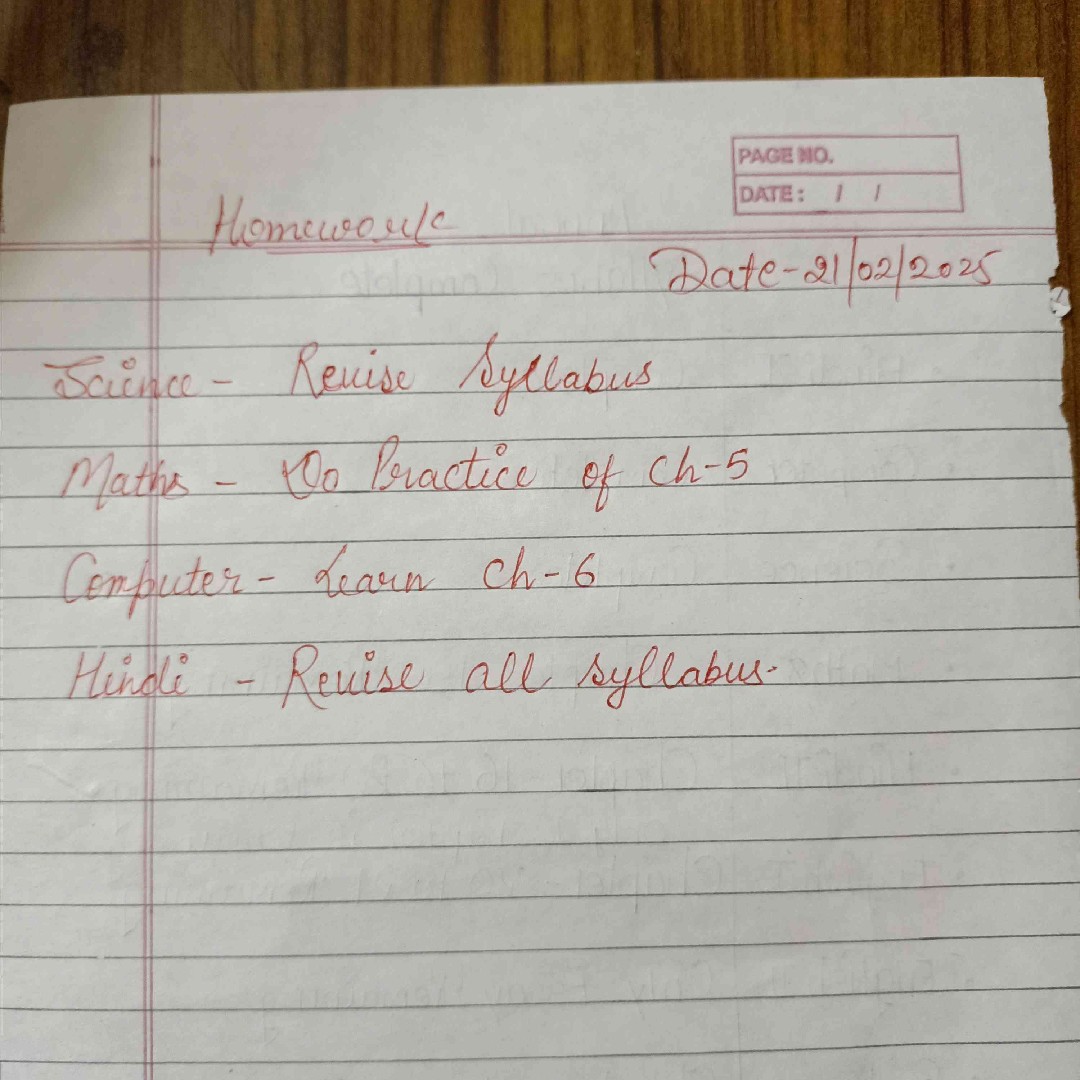 PAGE NO.
DATE: / /
Homework
Date-21/02/2025
Science - Revise Syllabus
Maths - Do Practice of Ch-5
Computer - Learn Ch-6
Hindi - Revise all syllabus.